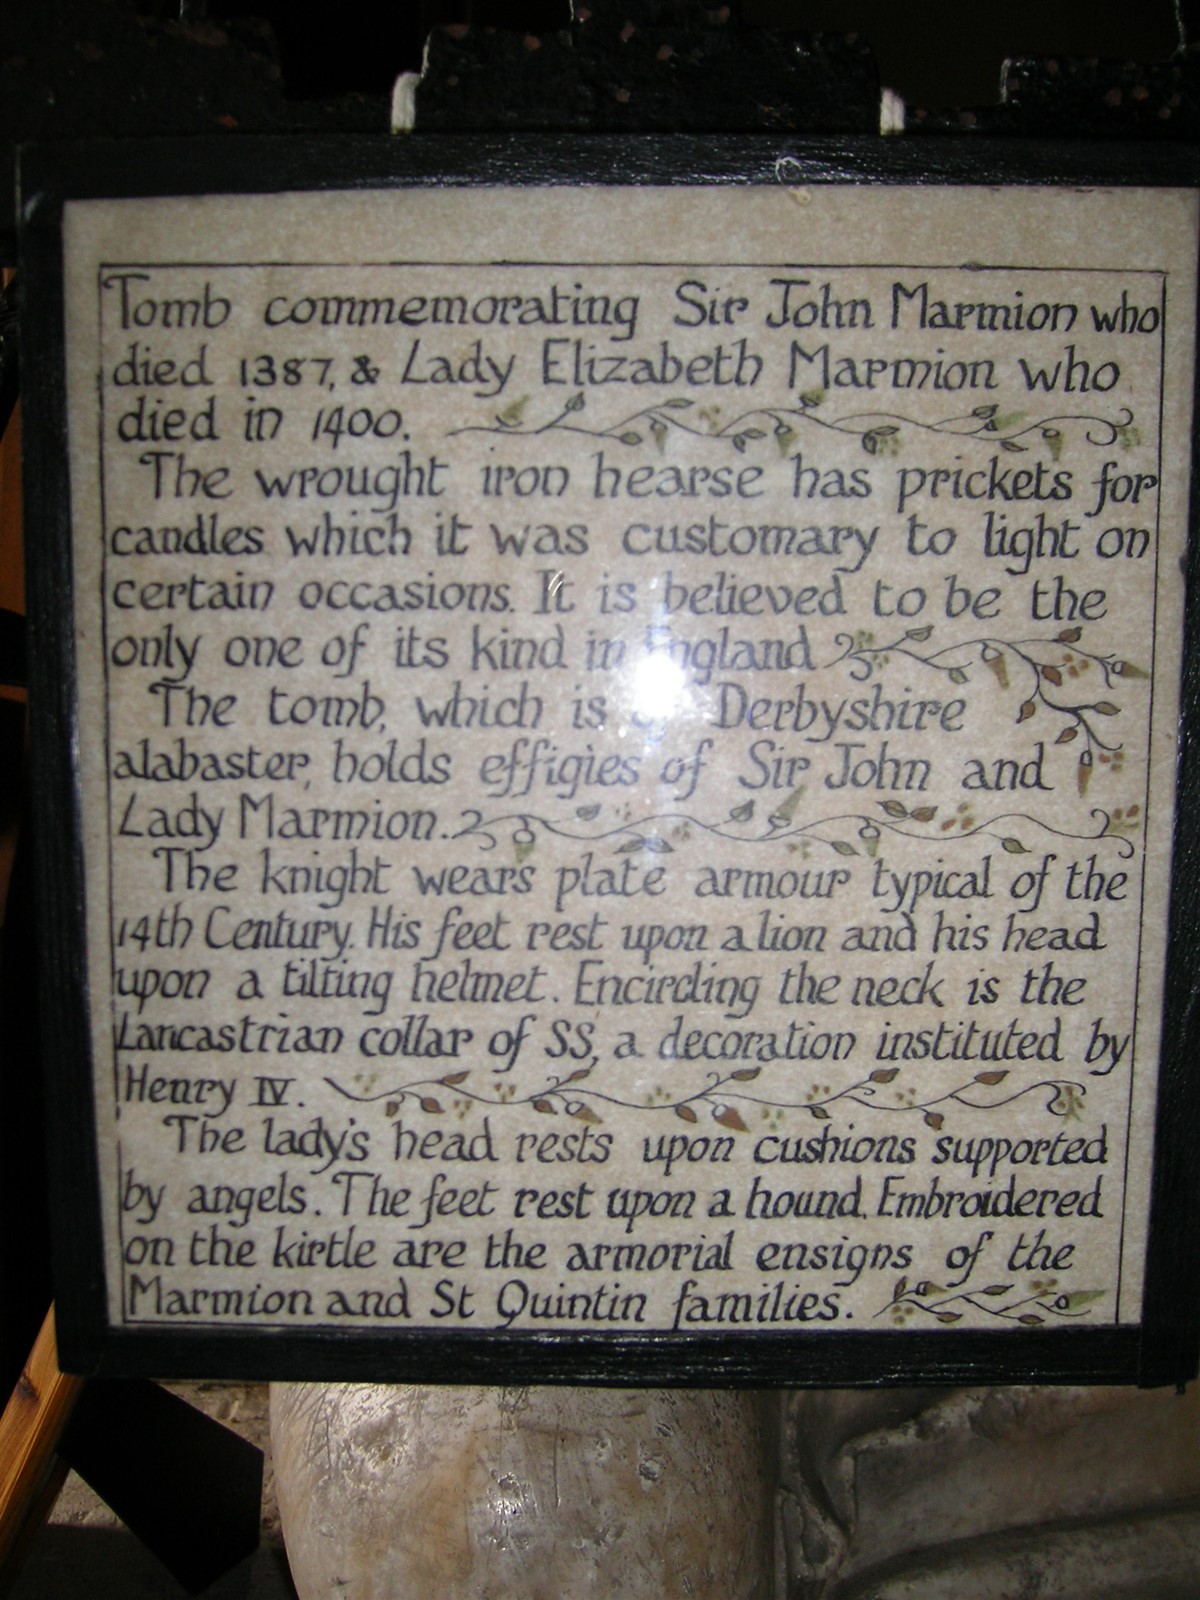 Tomb commemorating Sir John Marmion who
died 1387, & Lady Elizabeth Marmion who
died in 1400.
The wrought iron hearse has prickets for
candles which it was customary to light on
certain occasions. It is believed to be the
only one of its kind in England
The tomb, which is of Derbyshire
alabaster, holds effigies of Sir John and
Lady Marmion.
The knight wears plate armour typical of the
14th Century. His feet rest upon a lion and his head
upon a tilting helmet. Encircling the neck is the
Lancastrian collar of SS, a decoration instituted by
Henry IV.
The lady's head rests upon cushions supported
by angels. The feet rest upon a hound. Embroidered
on the kirtle are the armorial ensigns of the
Marmion and St Quintin families.